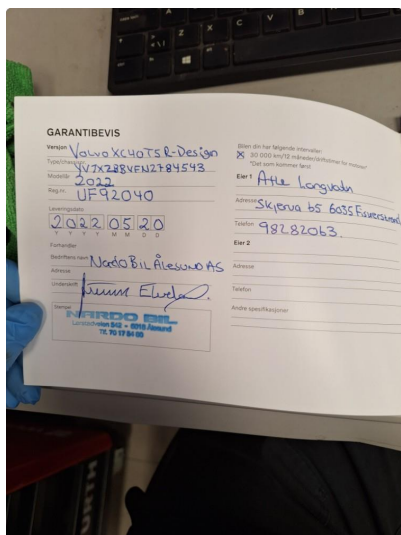 GARANTIBEVIS
Versjon Volvo XC40 T5 R-Design
Type/chassisnr. YV1XZ88VFN2784543
Modellår 2022
Reg.nr. UF92040
Leveringsdato
2 0 2 2 0 5 2 0
Y Y Y Y M M D D
Forhandler
Bedriftens navn Nardo BIL ÅLESUND AS
Adresse
Underskrift
Stempel
NARDO BIL
6015 Ålesund
Tlf. 70 17 84 00
Bilen din har følgende intervaller:
X 30 000 km/12 måneder/driftstimer for motoren*
*Det som kommer først
Eier 1 Atle Longvadn
Adresse Skjerva 65 6035
Telefon 98282063.
Eier 2
Adresse
Telefon
Andre spesifikasjoner